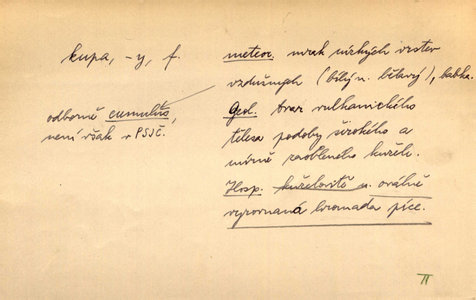 kupa, -y, f.
odborně cumulus,
není však v PSJČ.
meteor. mrak nízkých vrstev
vzdušných (bílý n. bělavý), babka.
Geol. tvar vulkanického
tělesa podoby širokého a
mírně zaobleného kužele.
Hosp. kuželovitě n. oválně
vyrovnaná hromada píce.
II